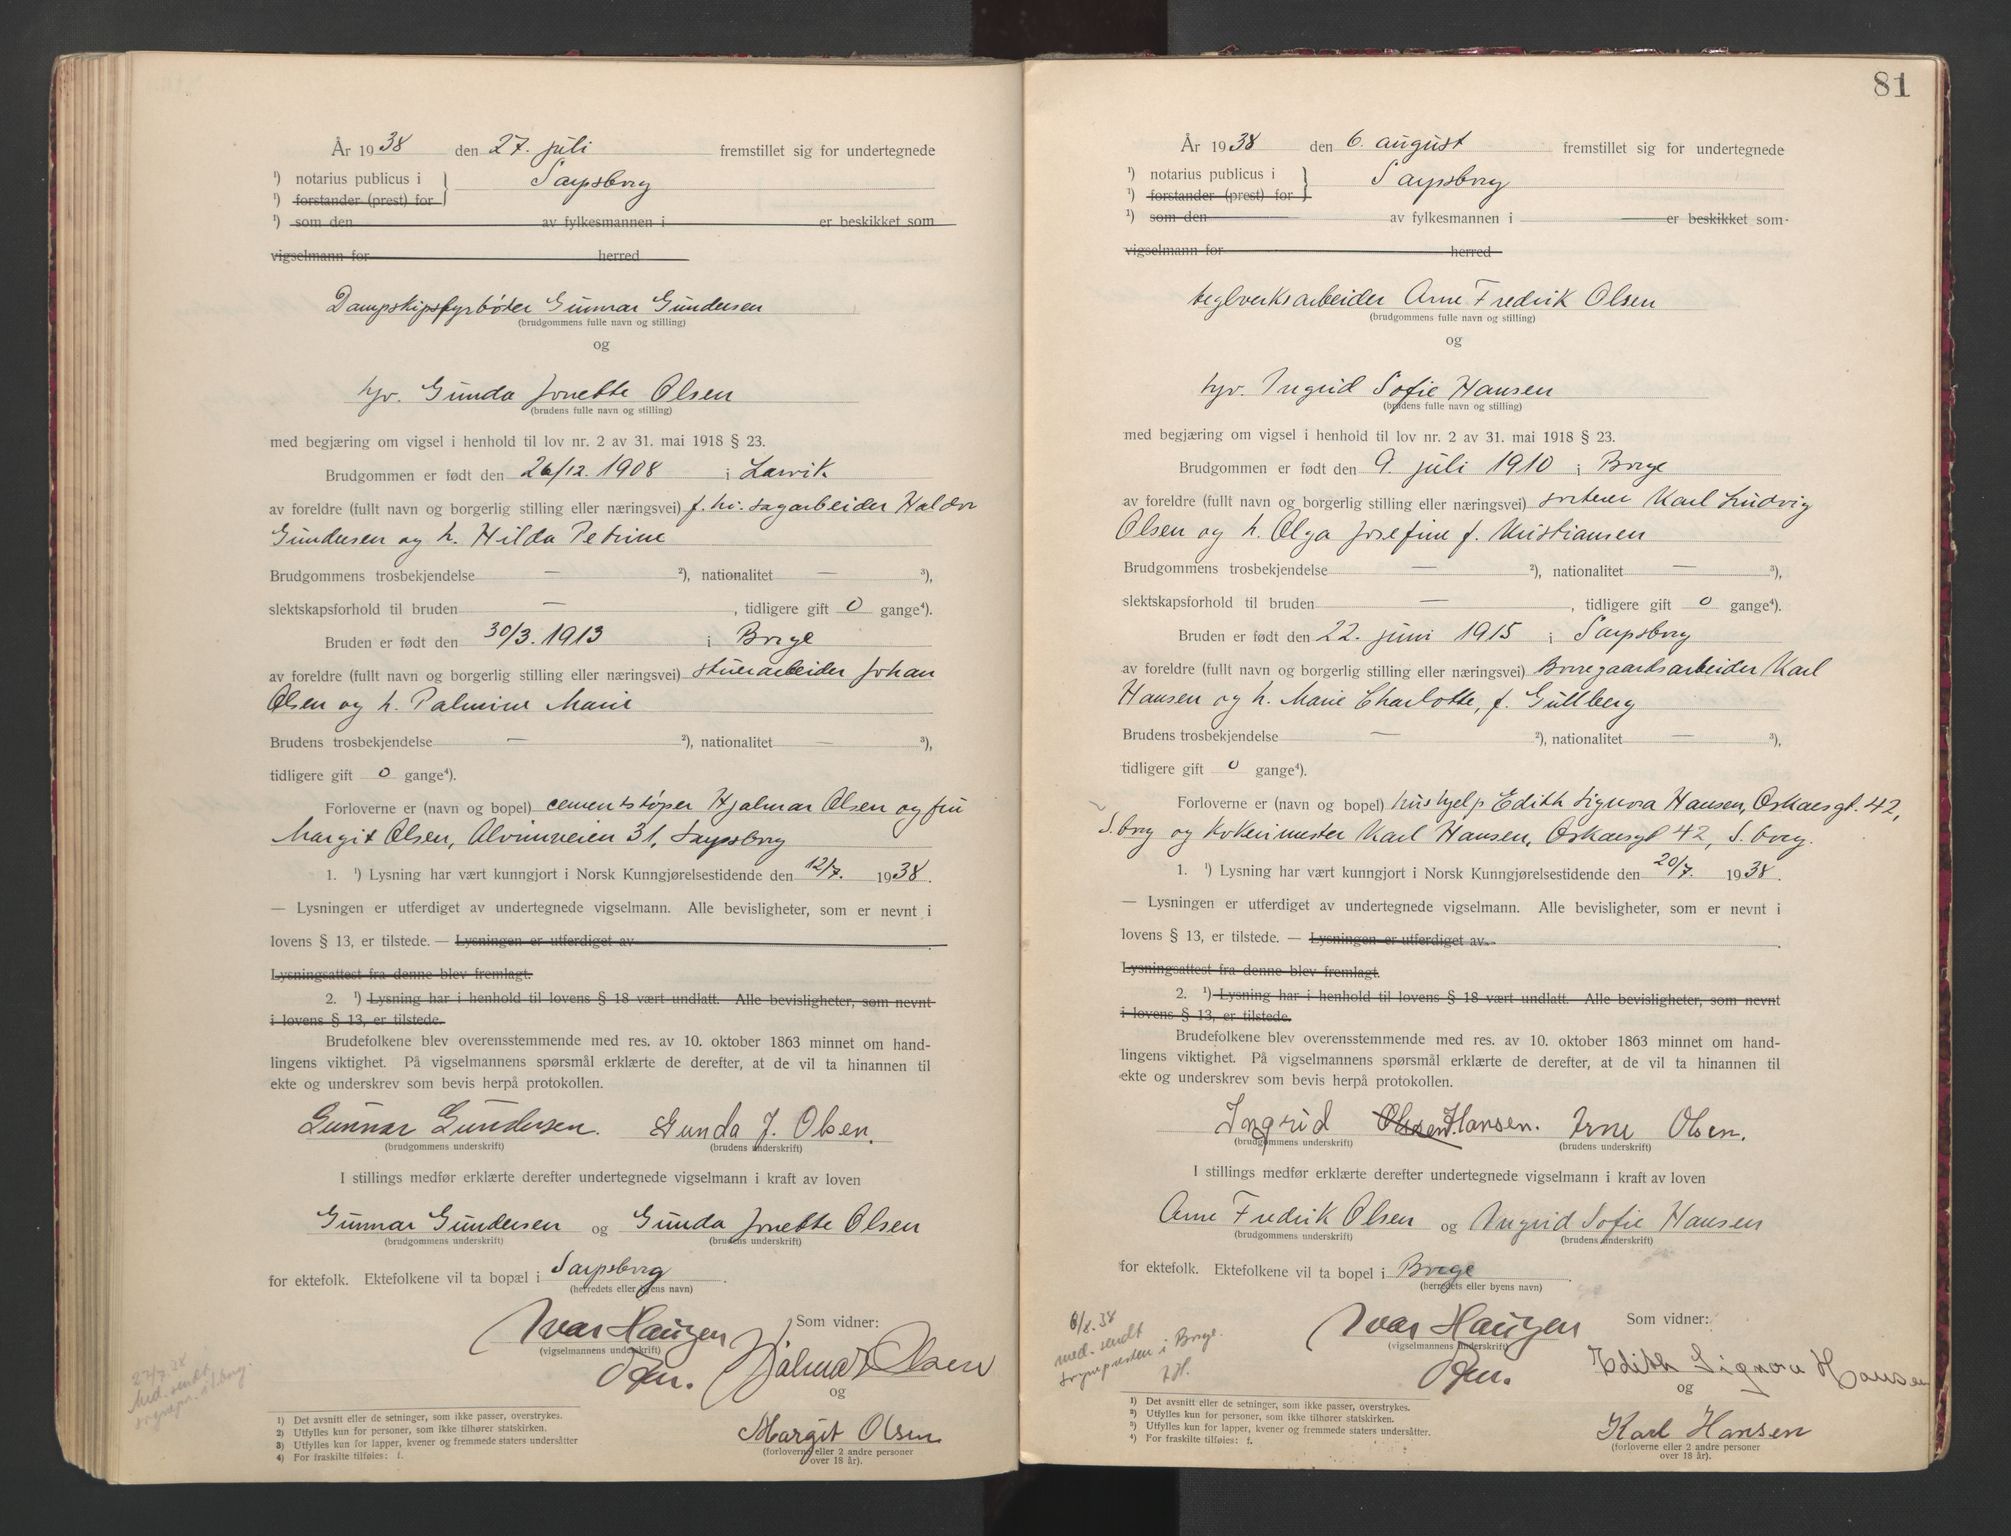 År 1938 den 27. juli fremstillet sig for undertegnede
¹) notarius publicus i } Sarpsborg
¹) forstander (prest) for
¹) som den av fylkesmannen i er beskikket som
vigselmann for herred
Dampskipsfyrbøter Gunnar Gundersen
(brudgommens fulle navn og stilling)
og
hjv. Gunda Jonette Olsen
(brudens fulle navn og stilling)
med begjæring om vigsel i henhold til lov nr. 2 av 31. mai 1918 § 23.
Brudgommen er født den 26/12. 1908 i Larvik
av foreldre (fullt navn og borgerlig stilling eller næringsvei) f. hv. sagarbeider Haldor
Gundersen og h. Hilda Petrine
Brudgommens trosbekjendelse — ²), nationalitet — ³),
slektskapsforhold til bruden — , tidligere gift 0 gange⁴).
Bruden er født den 30/3. 1913 i Borge
av foreldre (fullt navn og borgerlig stilling eller næringsvei) stuerarbeider Johan
Olsen og h. Palmine Marie
Brudens trosbekjendelse — ²), nationalitet — ³),
tidligere gift 0 gange⁴).
Forloverne er (navn og bopel) cementstøper Hjalmar Olsen og fru
Margit Olsen, Alvimveien 31, Sarpsborg
1. ¹) Lysning har vært kunngjort i Norsk Kunngjørelsestidende den 12/7. 1938.
— Lysningen er utferdiget av undertegnede vigselmann. Alle bevisligheter, som er nevnt i
lovens § 13, er tilstede. — Lysningen er utferdiget av
Lysningsattest fra denne blev fremlagt.
2. ¹) Lysning har i henhold til lovens § 18 vært undlatt. Alle bevisligheter, som nevnt
i lovens § 13, er tilstede.
Brudefolkene blev overensstemmende med res. av 10. oktober 1863 minnet om hand-
lingens viktighet. På vigselmannens spørsmål erklærte de derefter, at de vil ta hinannen til
ekte og underskrev som bevis herpå protokollen.
Gunnar Gundersen. Gunda J. Olsen.
(brudgommens underskrift) (brudens underskrift)
I stillings medfør erklærte derefter undertegnede vigselmann i kraft av loven
Gunnar Gundersen og Gunda Jonette Olsen
(brudgommens underskrift) (brudens underskrift)
for ektefolk. Ektefolkene vil ta bopæl i Sarpsborg.
(herredets eller byens navn)
Ivar Haugen Som vidner:
(vigselmannens underskrift)
Hjalmar Olsen
27/7.38
Med. sendt
sognepr. i S.borg.
og
Margit Olsen
(forloverne eller 2 andre personer
over 18 år).
1) Det avsnitt eller de setninger, som ikke passer, overstrykes.
2) Utfylles kun for personer, som ikke tilhører statskirken.
3) Utfylles kun for lapper, kvener og fremmede staters undersåtter
4) For fraskilte tilføies: f.
81
År 1938 den 6. august fremstillet sig for undertegnede
¹) notarius publicus i } Sarpsborg
¹) forstander (prest) for
¹) som den av fylkesmannen i er beskikket som
vigselmann for herred
teglverksarbeider Arne Fredrik Olsen
(brudgommens fulle navn og stilling)
og
hjv. Ingrid Sofie Hansen
(brudens fulle navn og stilling)
med begjæring om vigsel i henhold til lov nr. 2 av 31. mai 1918 § 23.
Brudgommen er født den 9. juli 1910 i Borge
av foreldre (fullt navn og borgerlig stilling eller næringsvei) sorterer Karl Ludvig
Olsen og h. Olga Josefine f. Kristiansen
Brudgommens trosbekjendelse — ²), nationalitet — ³),
slektskapsforhold til bruden — , tidligere gift 0 gange⁴).
Bruden er født den 22. juni 1915 i Sarpsborg
av foreldre (fullt navn og borgerlig stilling eller næringsvei) Borregaardsarbeider Karl
Hansen og h. Marie Charlotte, f. Gullberg
Brudens trosbekjendelse — ²), nationalitet — ³),
tidligere gift 0 gange⁴).
Forloverne er (navn og bopel) hushjelp Edith Signora Hansen, Oskarsgt. 42,
S.borg og kokerimester Karl Hansen, Oskarsgt 42, S.borg.
1. ¹) Lysning har vært kunngjort i Norsk Kunngjørelsestidende den 20/7. 1938.
— Lysningen er utferdiget av undertegnede vigselmann. Alle bevisligheter, som er nevnt i
lovens § 13, er tilstede. — Lysningen er utferdiget av
Lysningsattest fra denne blev fremlagt.
2. ¹) Lysning har i henhold til lovens § 18 vært undlatt. Alle bevisligheter, som nevnt
i lovens § 13, er tilstede.
Brudefolkene blev overensstemmende med res. av 10. oktober 1863 minnet om hand-
lingens viktighet. På vigselmannens spørsmål erklærte de derefter, at de vil ta hinannen til
ekte og underskrev som bevis herpå protokollen.
Ingrid Olsen Hansen. Arne Olsen.
(brudgommens underskrift) (brudens underskrift)
I stillings medfør erklærte derefter undertegnede vigselmann i kraft av loven
Arne Fredrik Olsen og Ingrid Sofie Hansen
(brudgommens underskrift) (brudens underskrift)
for ektefolk. Ektefolkene vil ta bopel i Borge.
(herredets eller byens navn)
Ivar Haugen Som vidner:
(vigselmannens underskrift)
6/8.38
med. sendt
sognepresten i Borge.
I.H.
Edith Signora Hansen
og
Karl Hansen
(forloverne eller 2 andre personer
over 18 år).
¹) Det avsnitt eller de setninger, som ikke passer, overstrykes.
²) Utfylles kun for personer, som ikke tilhører statskirken.
³) Utfylles kun for lapper, kvener og fremmede staters undersåtter.
⁴) For fraskilte tilføies: f.